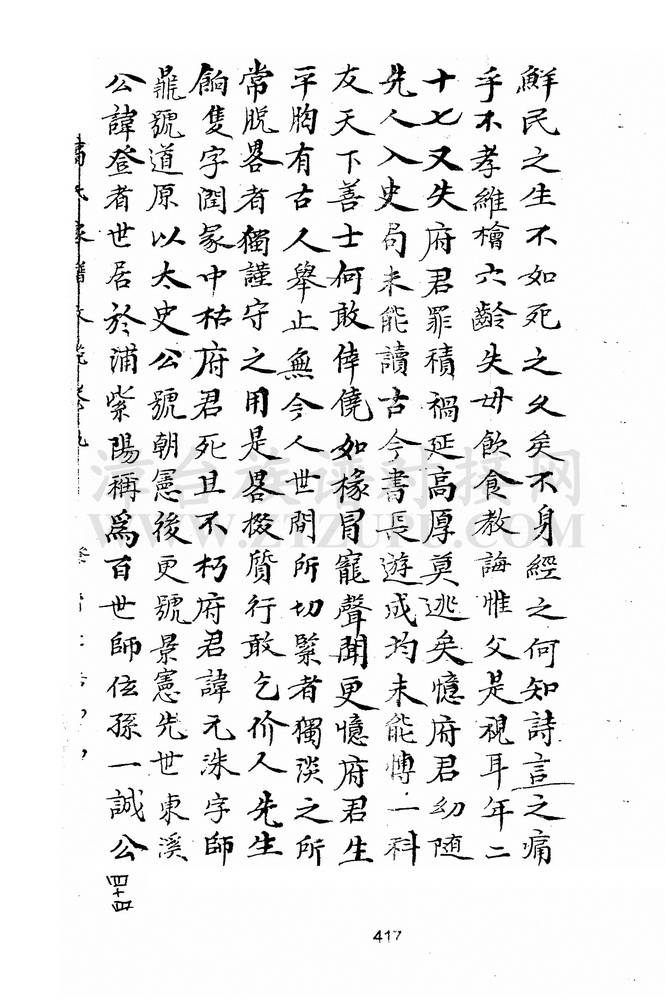 鮮民之生不如死之久矣不身經之何知詩言之痛
乎不孝維檜六齡失毋飲食教誨惟父是視耳年二
十七又失府君罪積禍延高厚莫逃矣憶府君幼随
先人入史局未能讀古今書長遊成均未能博一科
友天下善士何敢倖僥如椽冒寵聲聞更憶府君生
平胸有古人舉止無今人世間所切緊者獨淡之所
常脱畧者獨謹守之用是畧檢質行敢乞价人先生
餉隻字潤冢中枯府君死且不朽府君諱元洙字師
號道原以太史公號朝憲後更號景憲先世東溪
公諱登者世居於浦紫陽稱為百世師伝孫一誠公
四十四
417
漳台族譜對接網
WWW.ZTZUPU.COM